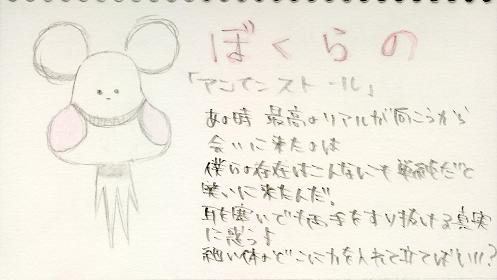 ぼくらの
「アンインストール」
あの時 最高のリアルが向こうから
会いに来たのは
僕らの存在はこんなにも単純だと
笑いに来たんだ。
耳を塞いでも両手をすり抜ける真実
に惑うよ
細い体のどこに力を入れて立てばいい?